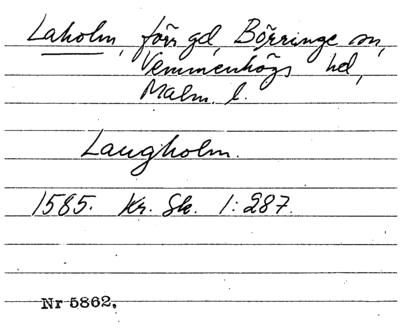 Laholm, förr gd, Börringe sn,
Vemmenhögs hd,
Malm. l.
Laugholm.
1585. Kr. Sk. 1:287.
Nr 5862.